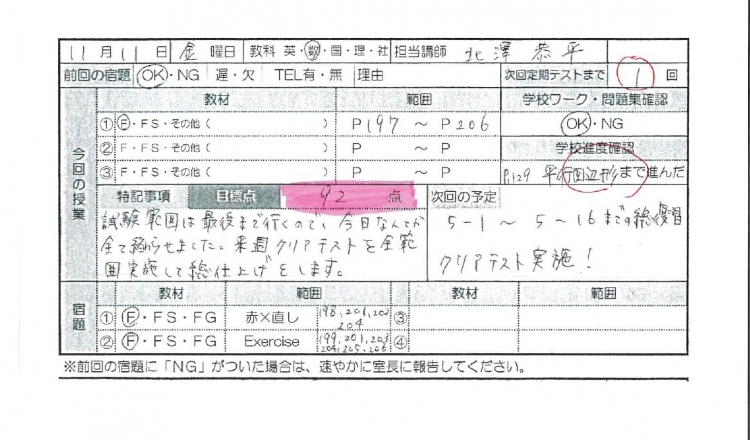 11月11日 金曜日 教科 英・数・国・理・社 担当講師 北澤 恭平
前回の宿題 OK・NG 遅・欠 TEL有・無 理由 次回定期テストまで 1 回
今回の授業
教材 範囲
① F・FS・その他( ) P197 ~ P206
② F・FS・その他( ) P ~ P
③ F・FS・その他( ) P ~ P
学校ワーク・問題集確認
OK・NG
学校進度確認
P129 平行四辺形まで進んだ
特記事項 目標点 92 点
試験範囲は最後まで行くので、今日なんとか
全て終わらせました。来週クリアテストを全範
囲実施して総仕上げをします。
次回の予定
5-1 ~ 5-16までの総復習
クリアテスト実施!
宿題
教材 範囲 教材 範囲
① F・FS・FG 赤×直し 198, 201, 202 ③
204
② F・FS・FG Exercise 199, 201, 203 ④
204, 205, 206
※前回の宿題に「NG」がついた場合は、速やかに室長に報告してください。